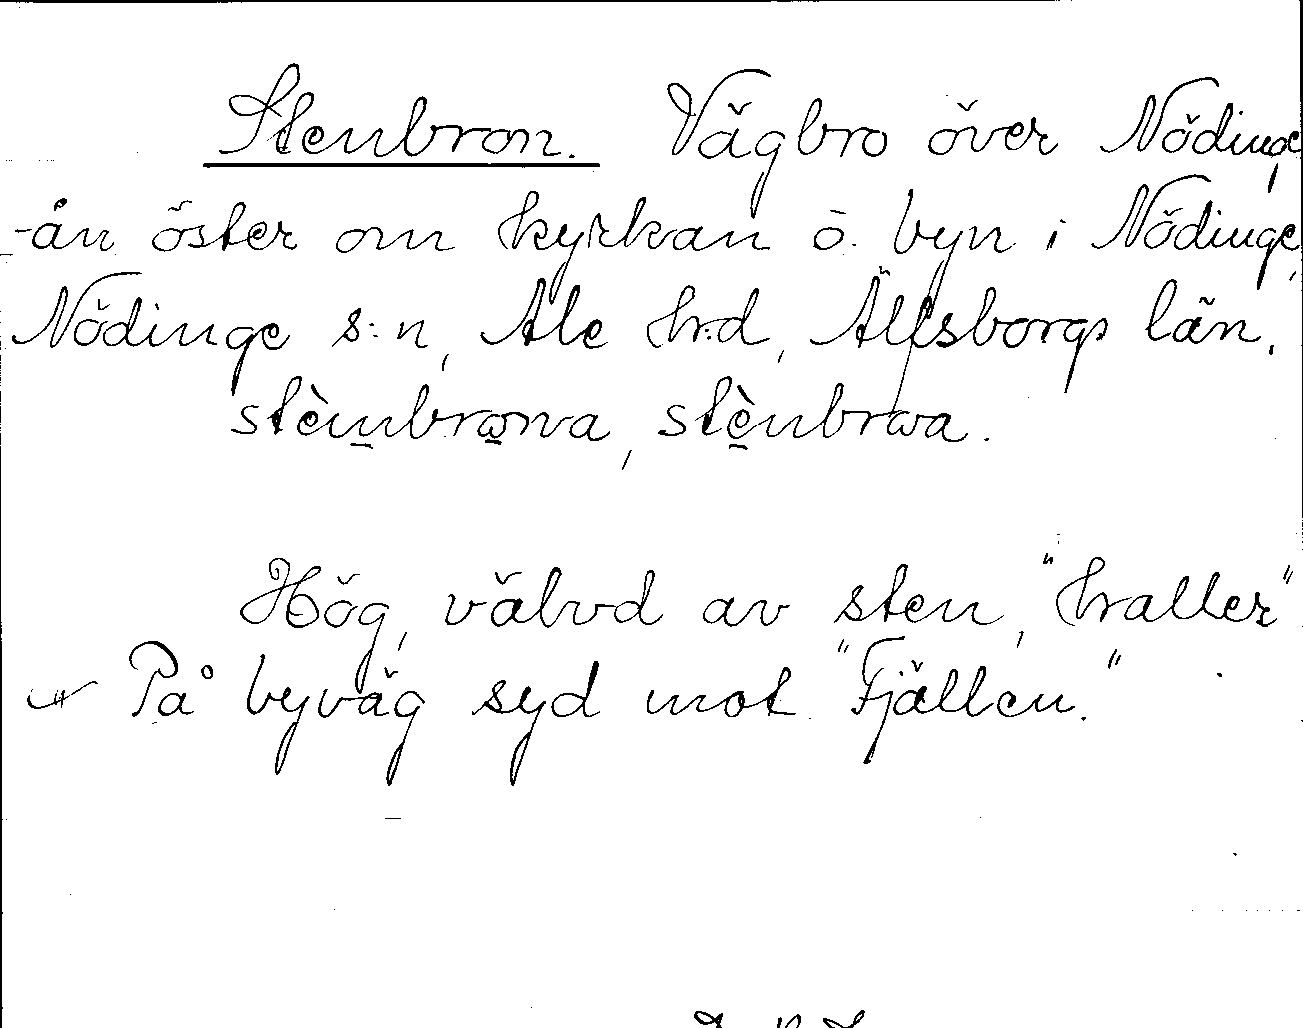 Stenbron. Vägbro över Nödinge
-ån öster om kyrkan o. byn i Nödinge,
Nödinge s:n, Ale hrd, Älfsborgs län.
stèmbrɷna, stènbrɷa.
Hög, välvd av sten, "haller"
På byväg syd mot "Fjällen."